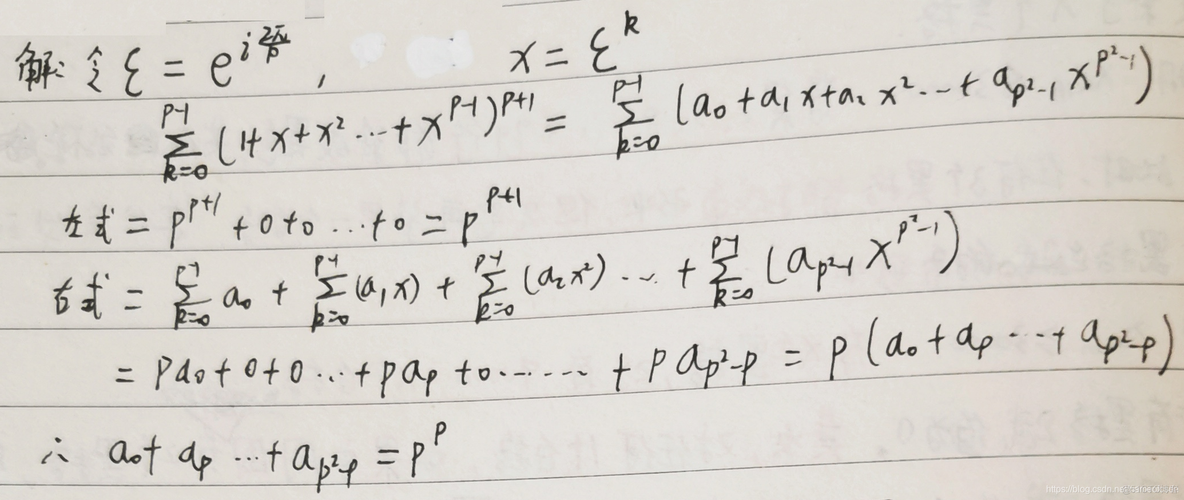 解: 令 ξ = e^{i 2π/p}, x = ξ^k
∑_{k=0}^{p-1} (1+x+x²⋯+x^{p-1})^{p+1} = ∑_{k=0}^{p-1} (a₀+a₁x+a₂x²⋯+a_{p²-1}x^{p²-1})
左式 = p^{p+1} +0+0⋯+0 = p^{p+1}
右式 = ∑_{k=0}^{p-1} a₀ + ∑_{k=0}^{p-1} (a₁x) + ∑_{k=0}^{p-1} (a₂x²) ⋯ + ∑_{k=0}^{p-1} (a_{p²-1} x^{p²-1})
= pa₀+0+0⋯+pa_p+0⋯⋯+pa_{p²-p} = p(a₀+a_p⋯+a_{p²-p})
∴ a₀+a_p⋯+a_{p²-p} = p^p